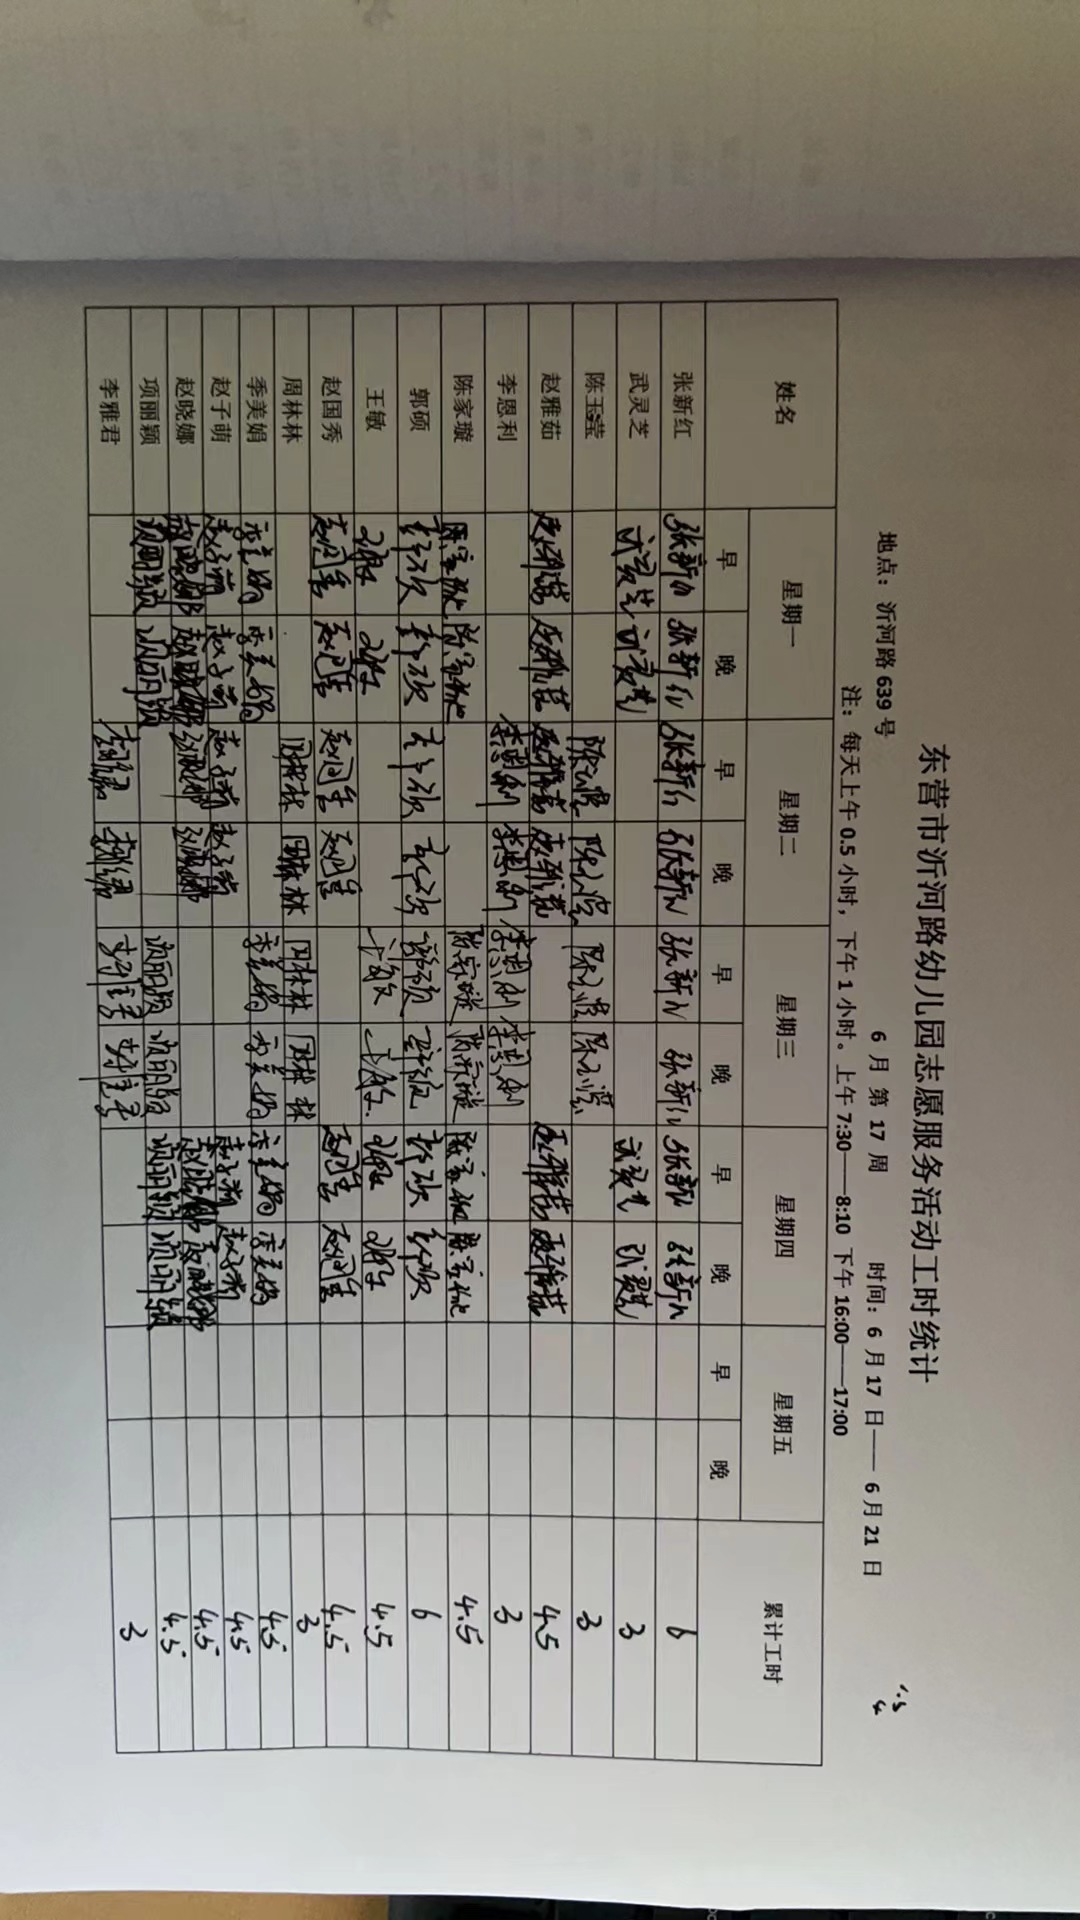 东营市沂河路幼儿园志愿服务活动工时统计
地点：沂河路 639 号 6 月 第 17 周 时间：6 月 17 日—— 6 月 21 日
注：每天上午 0.5 小时，下午 1 小时。上午 7:30——8:10 下午 16:00——17:00
1.5
4
姓名 星期一 星期二 星期三 星期四 星期五 累计工时
早 晚 早 晚 早 晚 早 晚 早 晚
张新红 张新红 张新红 张新红 张新红 张新红 张新红 张新红 张新红 6
武灵芝 武灵芝 武灵芝 武灵芝 武灵芝 3
陈玉莹 陈玉莹 陈玉莹 陈玉莹 陈玉莹 3
赵雅茹 赵雅茹 赵雅茹 赵雅茹 赵雅茹 赵雅茹 赵雅茹 4.5
李恩利 李恩利 李恩利 李恩利 李恩利 3
陈家璇 陈家璇 陈家璇 陈家璇 陈家璇 陈家璇 陈家璇 4.5
郭硕 郭硕 郭硕 郭硕 郭硕 郭硕 郭硕 郭硕 郭硕 6
王敏 王敏 王敏 王敏 王敏 王敏 王敏 4.5
赵国秀 赵国秀 赵国秀 赵国秀 赵国秀 赵国秀 赵国秀 4.5
周林林 周林林 周林林 周林林 周林林 3
季美娟 季美娟 季美娟 季美娟 季美娟 季美娟 季美娟 4.5
赵子萌 赵子萌 赵子萌 赵子萌 赵子萌 赵子萌 赵子萌 4.5
赵晓娜 赵晓娜 赵晓娜 赵晓娜 赵晓娜 赵晓娜 赵晓娜 4.5
项丽颖 项丽颖 项丽颖 项丽颖 项丽颖 项丽颖 项丽颖 4.5
李雅君 李雅君 李雅君 李雅君 李雅君 3